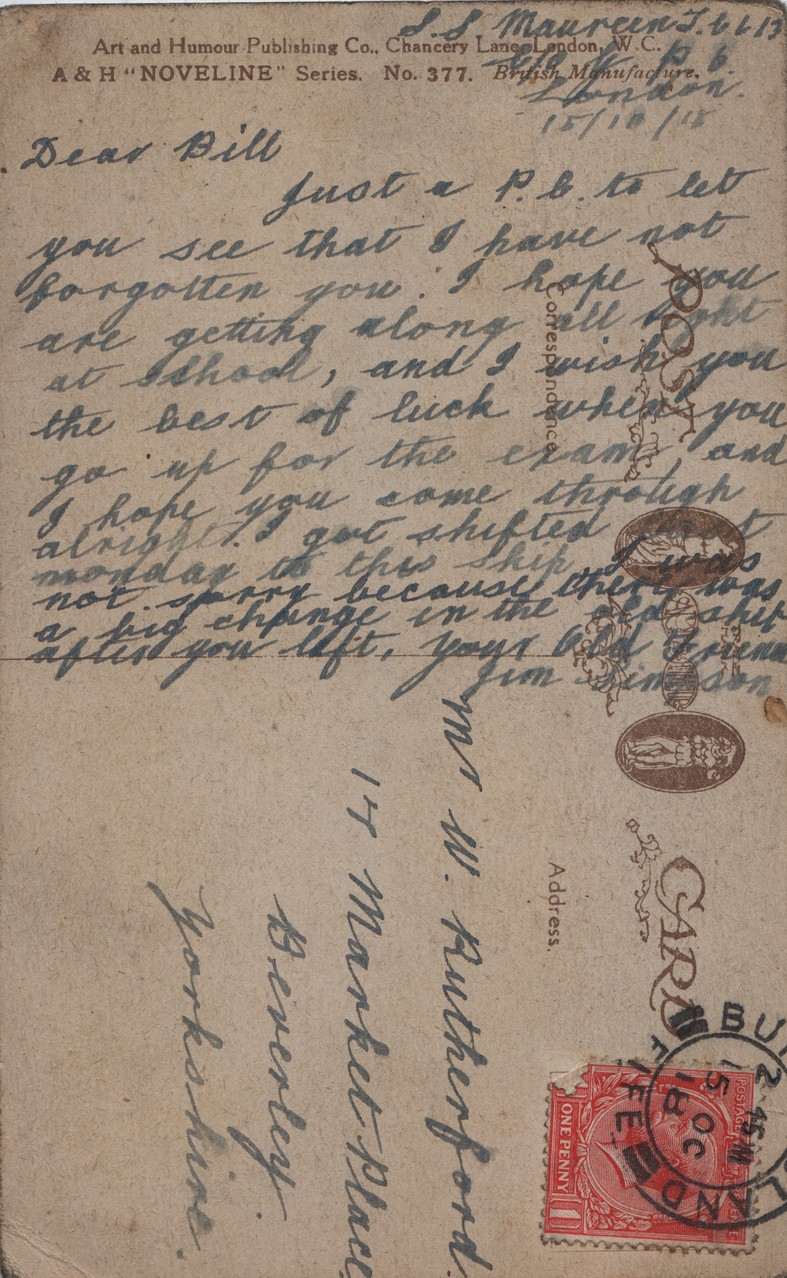 S.S. Maureen
Art and Humour Publishing Co., Chancery Lane, London, W.C.
A & H "NOVELINE" Series. No. 377. British Manufacture.
London.
15/10/18
Dear Bill
Just a P.C. to let
you see that I have not
forgotten you. I hope you
are getting along all right
at school, and I wish you
the best of luck when you
go up for the exam, and
I hope you come through
alright. I got shifted last
monday to this ship. I was
not sorry because there was
a big change in the old ship
after you left, your Old Friend
Jim Simpson
POST CARD
Correspondence.
Address.
Mr W. Rutherford.
17 Market Place
Beverley.
Yorkshire.
BU
LAND
FIFE
2 45 PM
15 OC
18
POSTAGE
ONE PENNY
1